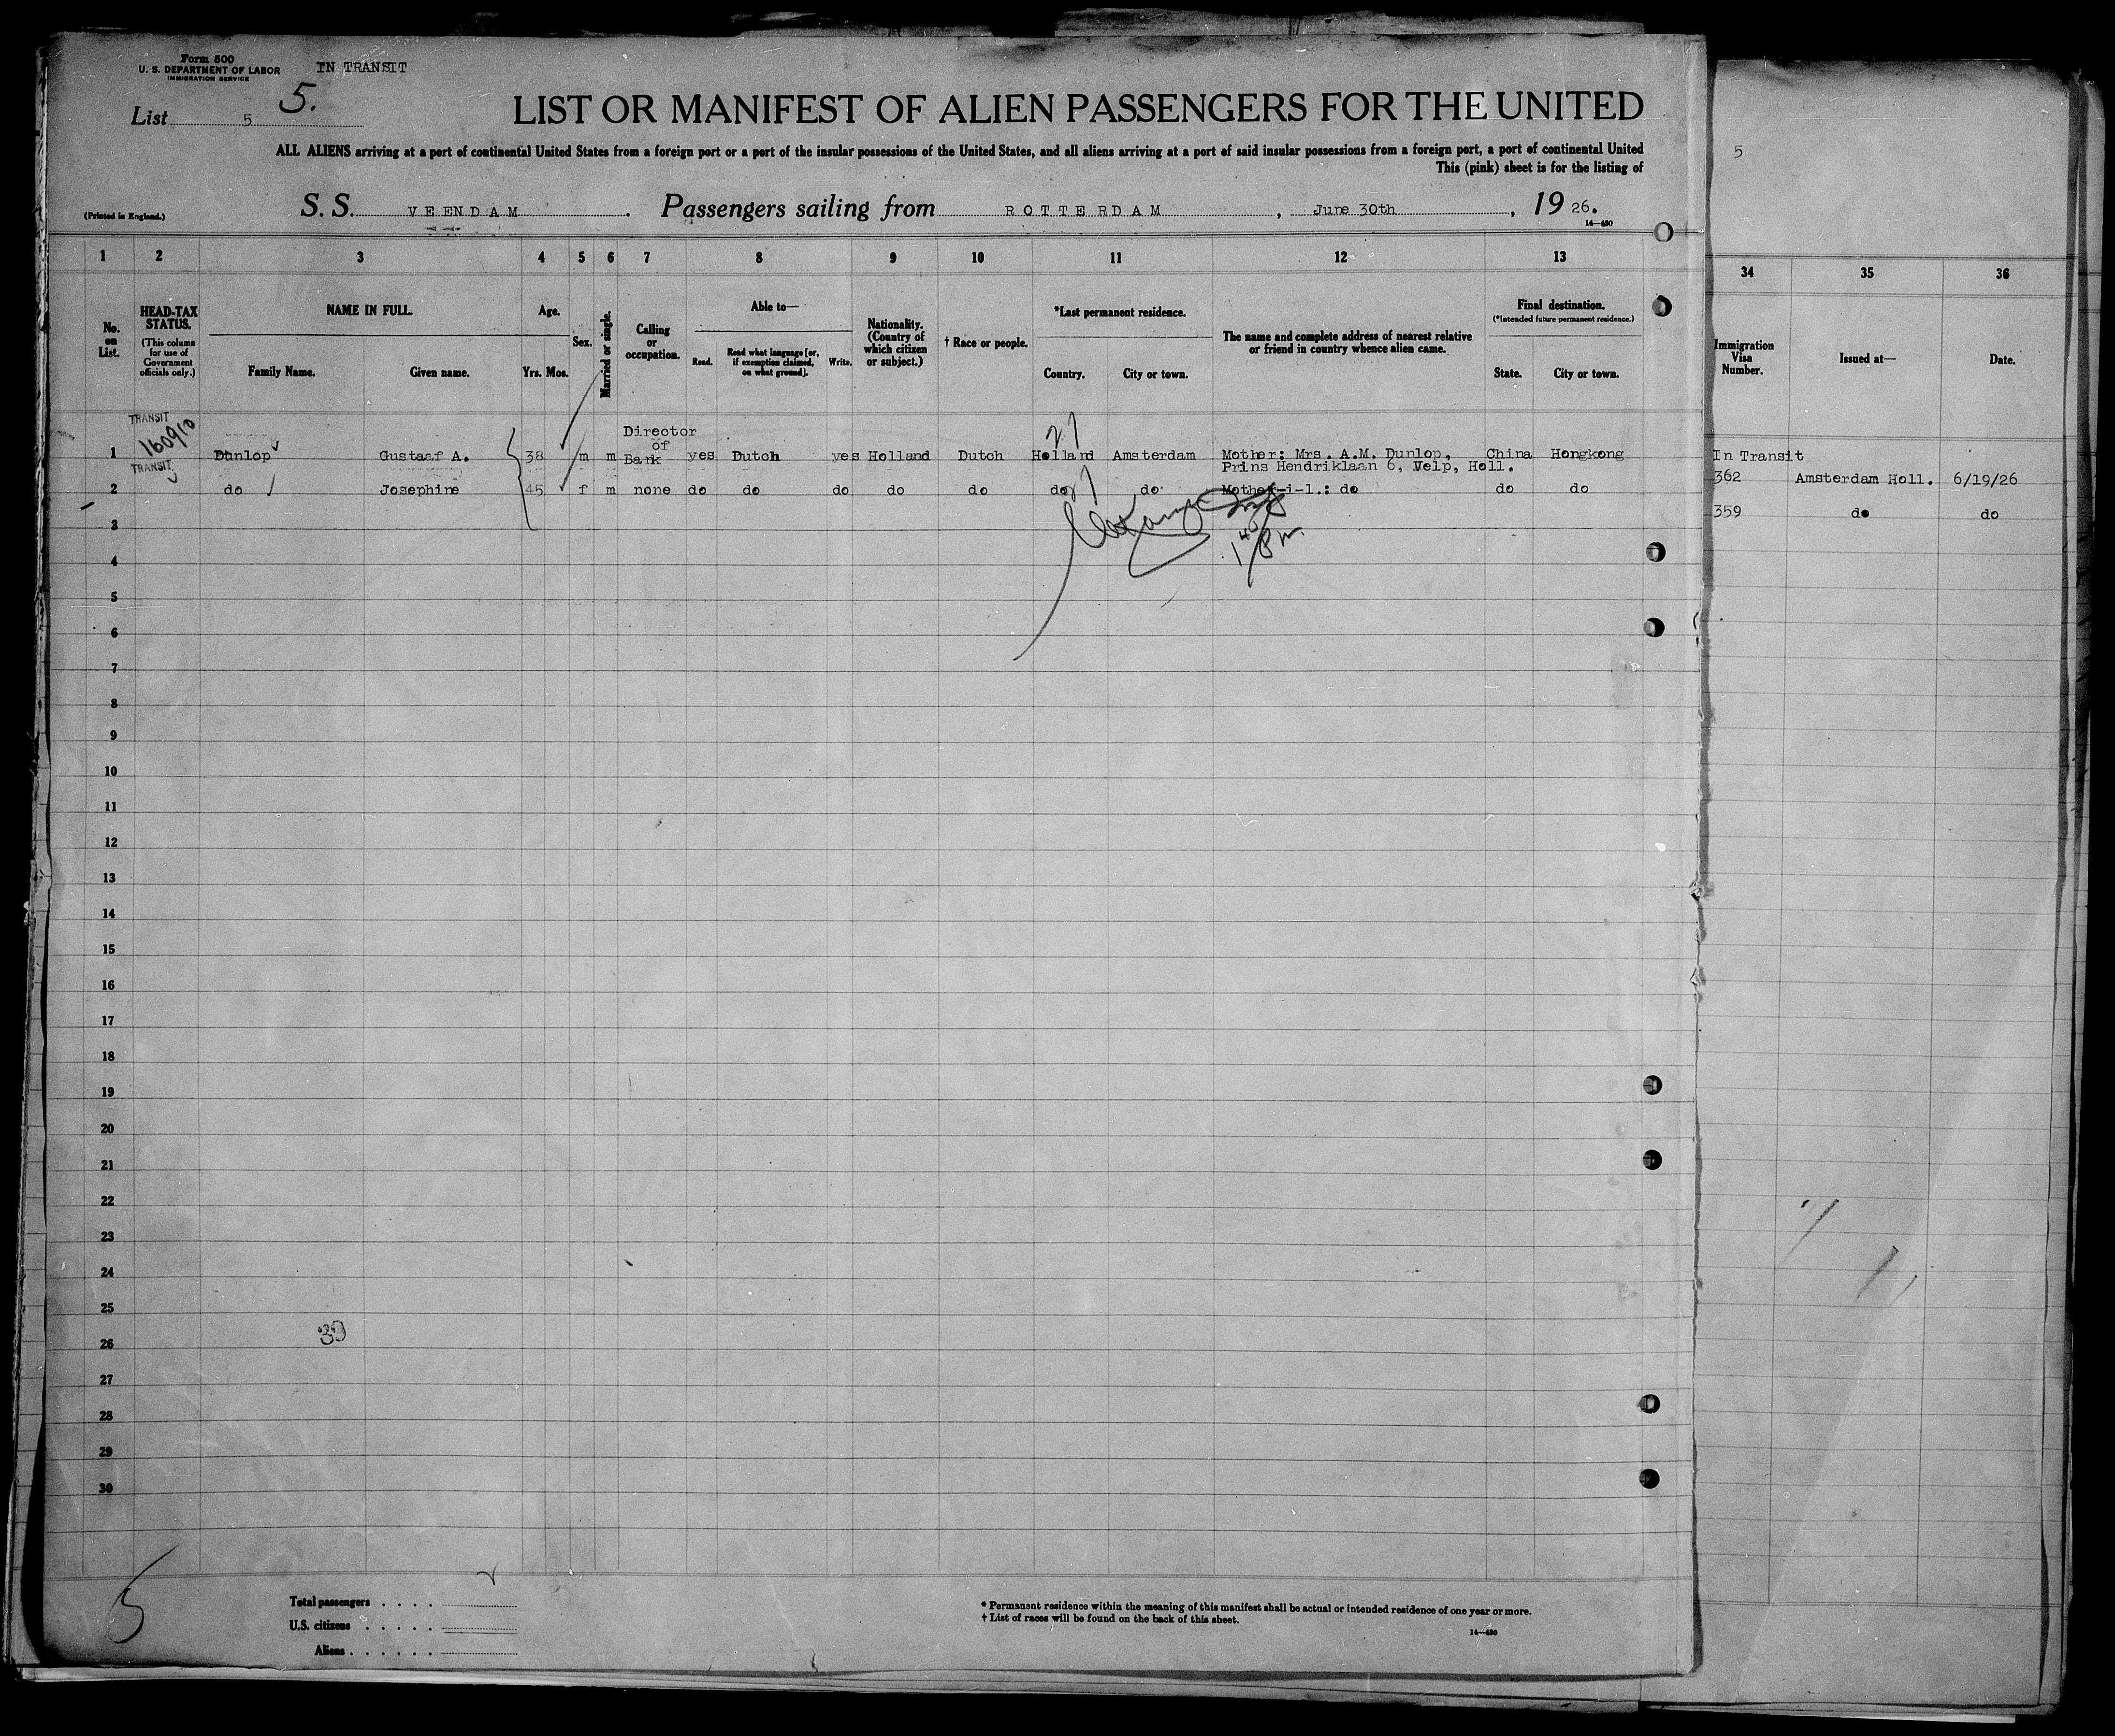 Form 500
U. S. DEPARTMENT OF LABOR
IMMIGRATION SERVICE
IN TRANSIT
5.
List 5
LIST OR MANIFEST OF ALIEN PASSENGERS FOR THE UNITED
ALL ALIENS arriving at a port of continental United States from a foreign port or a port of the insular possessions of the United States, and all aliens arriving at a port of said insular possessions from a foreign port, a port of continental United
This (pink) sheet is for the listing of
5
(Printed in England.)
S. S. VEENDAM. Passengers sailing from ROTTERDAM, June 30th, 1926.
14—430
1 2 3 4 5 6 7 8 9 10 11 12 13 34 35 36
No. on List.
HEAD-TAX STATUS.
(This column for use of Government officials only.)
NAME IN FULL.
Family Name. Given name.
Age.
Yrs. Mos.
Sex.
Married or single.
Calling or occupation.
Able to—
Read. Read what language [or, if exemption claimed, on what ground]. Write.
Nationality. (Country of which citizen or subject.)
† Race or people.
*Last permanent residence.
Country. City or town.
The name and complete address of nearest relative or friend in country whence alien came.
Final destination.
(*Intended future permanent residence.)
State. City or town.
Immigration Visa Number.
Issued at—
Date.
TRANSIT
160910
1 Dunlop Gustaaf A. 38 m m Director of Bank yes Dutch yes Holland Dutch Holland Amsterdam Mother: Mrs. A.M. Dunlop, Prins Hendriklaan 6, Velp, Holl. China Hongkong
In Transit
362 Amsterdam Holl. 6/19/26
TRANSIT
2 do Josephine 45 f m none do do do do do do do Mother-i-l.: do do do
359 do do
3
4
5
6
7
8
9
10
11
12
13
14
15
16
17
18
19
20
21
22
23
24
25
26
27
28
29
30
39
5
Total passengers . . . .
U.S. citizens . . . . .
Aliens . . . . . .
* Permanent residence within the meaning of this manifest shall be actual or intended residence of one year or more.
† List of races will be found on the back of this sheet.
14—430